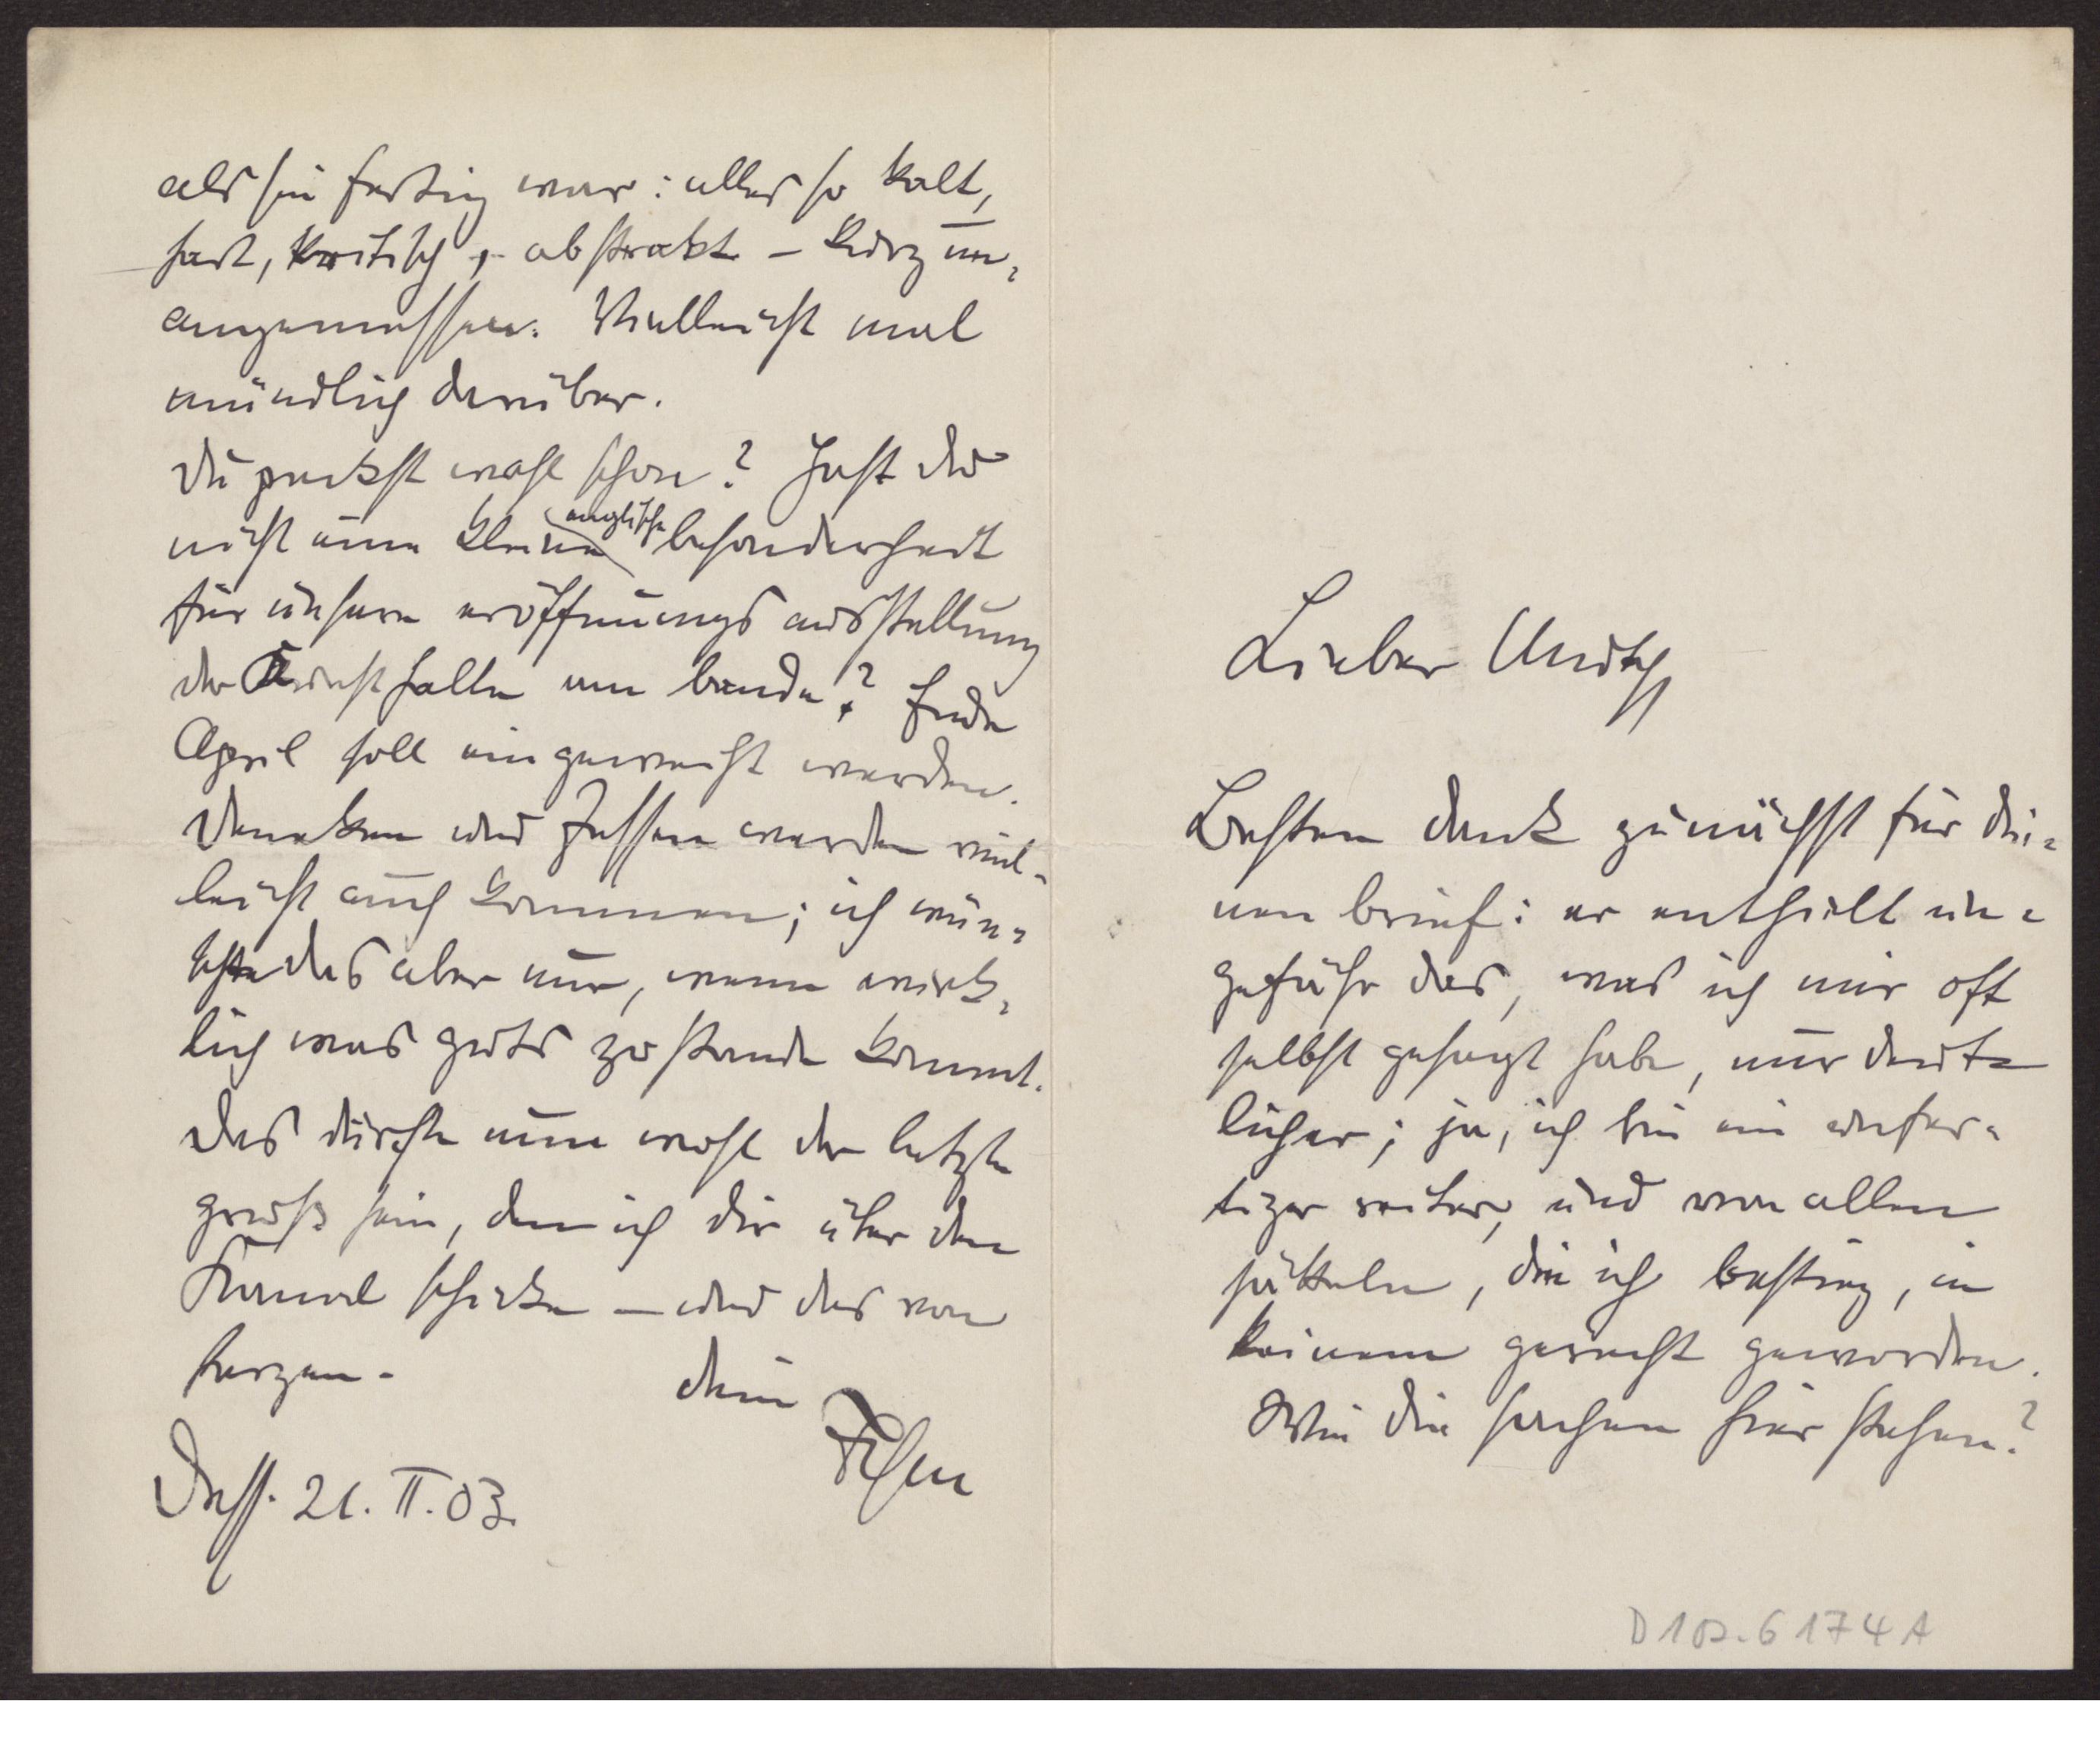 als sie fertig war: alles so kalt,
hart, kritisch, abstrakt – kurz un=
angemessen. Vielleicht mal
mündlich darüber.
Du packst wohl schon? Hast du
nicht eine kleine englische besonderheit
für unsere eröffnungsausstellung
der Kunsthalle am bande? Ende
April soll eingeweiht werden.
Deneken und Jessen werden viel-
leicht auch kommen; ich wün=
schte das aber nur, wenn wirk=
lich was guts zustande kommt.
Das dürfte nun wohl der letzte
gruss sein, den ich dir über den
Kanal schicke – und das von
herzen.
dein
Dess. 21. II. 03.
Lieber
Besten dank zunächst für dei=
nen brief: er enthielt un=
gefähr das, was ich mir oft
selbst gesagt habe, nur deut=
licher; ja, ich bin ein unfer=
tiger reiter, und von allen
sätteln, die ich bestieg, in
keinem gerecht geworden.
Wie die sachen hier stehen?
D 102-6174 A